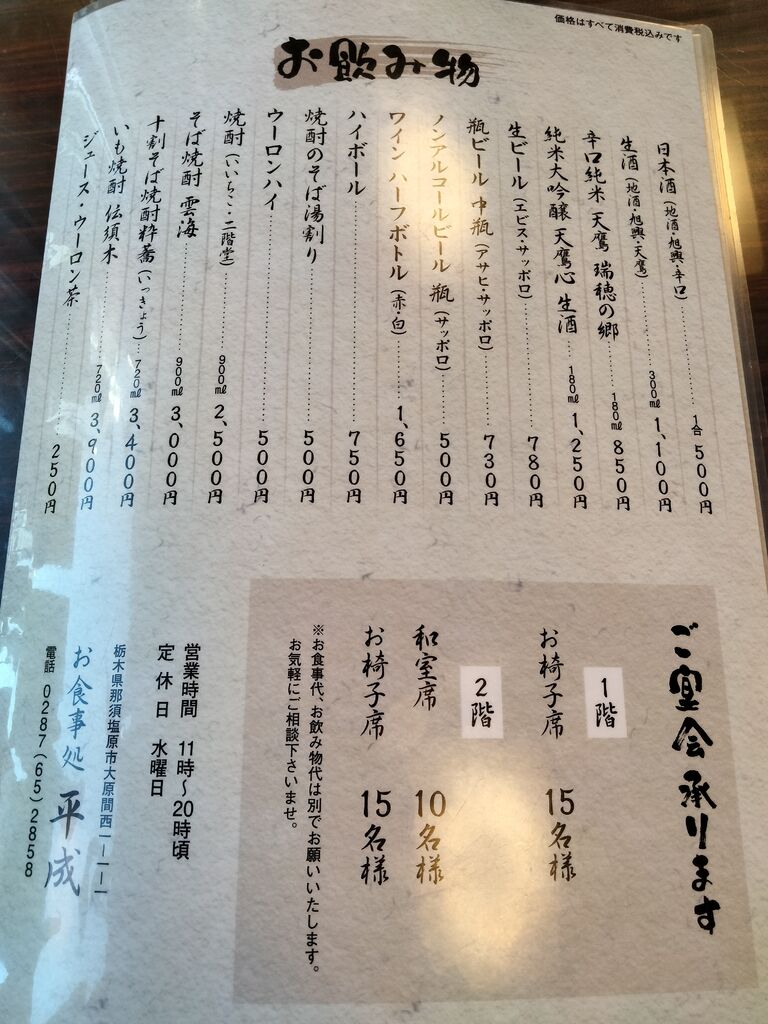 価格はすべて消費税込みです
お飲み物
日本酒(地酒・旭興・辛口)………1合 500円
生酒(地酒・旭興・天鷹)………300㎖ 1,100円
辛口純米 天鷹 瑞穂の郷………180㎖ 850円
純米大吟醸 天鷹心 生酒…180㎖ 1,250円
生ビール(エビス・サッポロ)………780円
瓶ビール 中瓶(アサヒ・サッポロ)………730円
ノンアルコールビール 瓶(サッポロ)………500円
ワイン ハーフボトル(赤・白)………1,650円
ハイボール………750円
焼酎のそば湯割り………500円
ウーロンハイ………500円
焼酎(いいちこ・二階堂)………900㎖ 2,500円
そば焼酎 雲海………900㎖ 3,000円
十割そば焼酎粋蕎(いっきょう)…720㎖ 3,400円
いも焼酎 伝須木………720㎖ 3,900円
ジュース・ウーロン茶………250円
ご宴会承ります
1階
お椅子席 15名様
2階
和室席 10名様
お椅子席 15名様
※お食事代、お飲み物代は別でお願いいたします。
お気軽にご相談下さいませ。
営業時間 11時〜20時頃
定休日 水曜日
栃木県那須塩原市大原間西一ー一ー一
お食事処 平成
電話 0287(65)2858